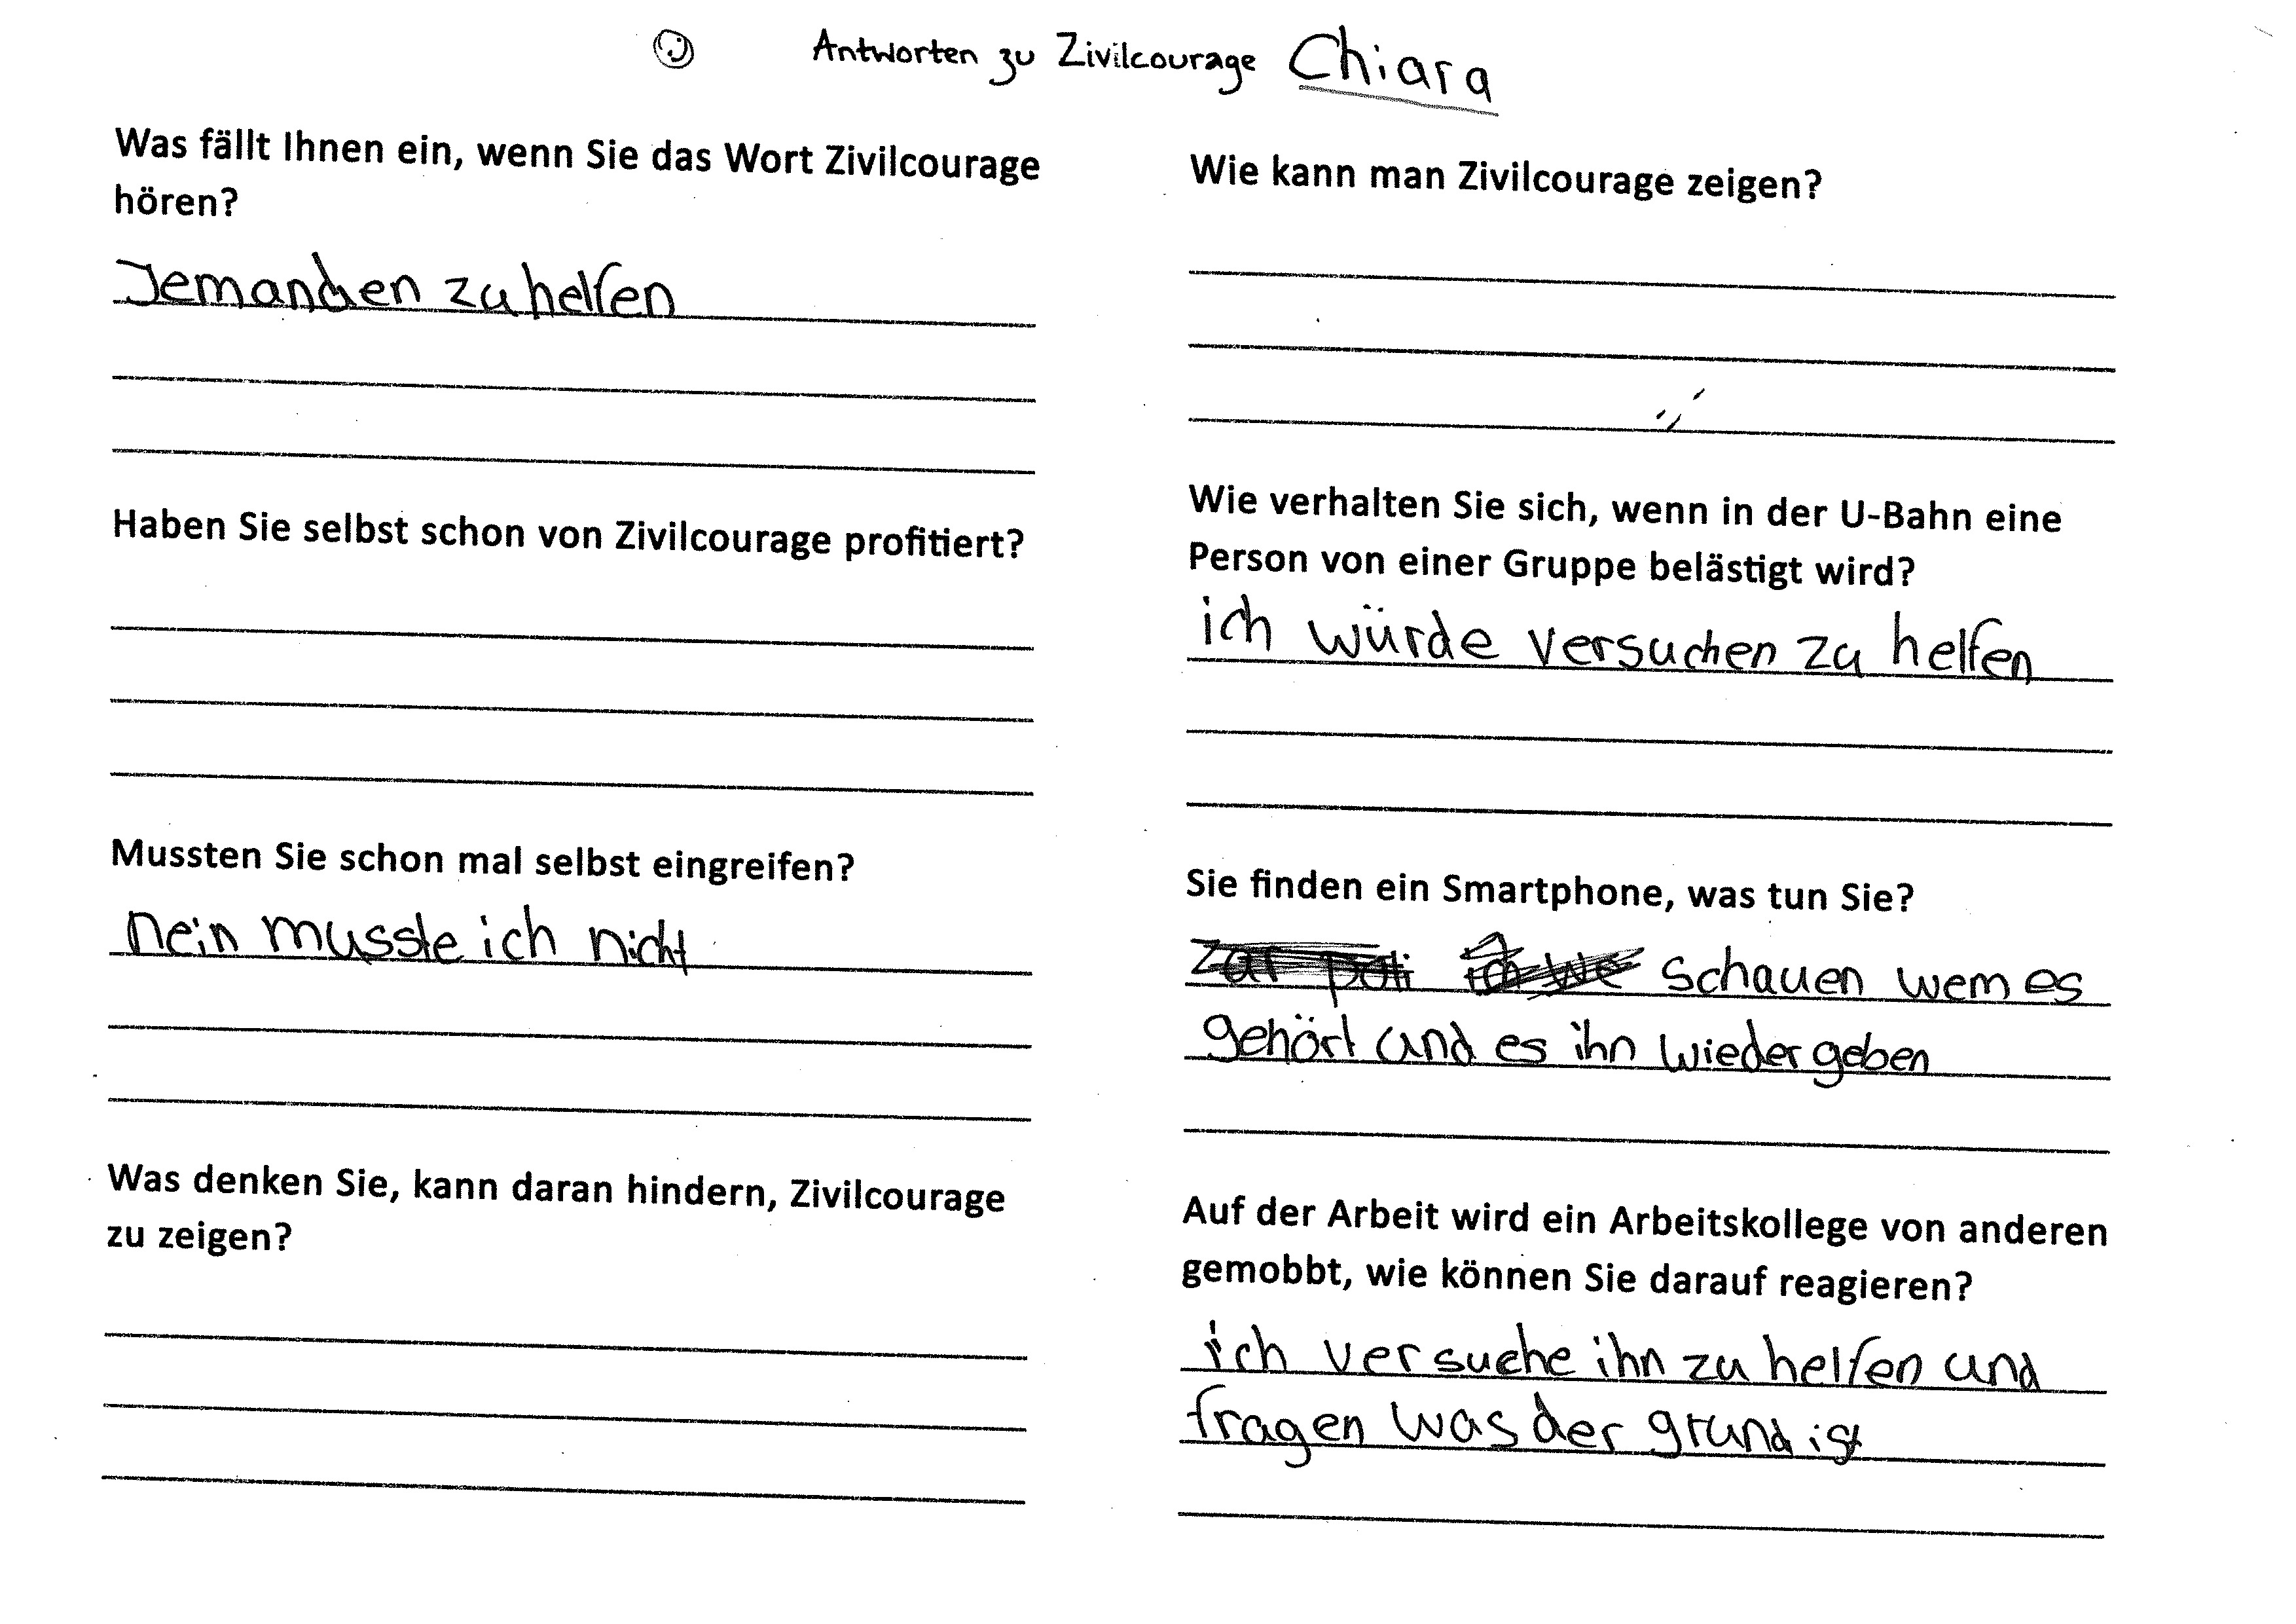 Antworten zu Zivilcourage Chiara
Was fällt Ihnen ein, wenn Sie das Wort Zivilcourage
hören?
Jemanden zu helfen
Haben Sie selbst schon von Zivilcourage profitiert?
Mussten Sie schon mal selbst eingreifen?
nein musste ich nicht
Was denken Sie, kann daran hindern, Zivilcourage
zu zeigen?
Wie kann man Zivilcourage zeigen?
Wie verhalten Sie sich, wenn in der U-Bahn eine
Person von einer Gruppe belästigt wird?
ich würde versuchen zu helfen
Sie finden ein Smartphone, was tun Sie?
schauen wem es
gehört und es ihn wieder geben
Auf der Arbeit wird ein Arbeitskollege von anderen
gemobbt, wie können Sie darauf reagieren?
ich versuche ihn zu helfen und
fragen was der grund ist